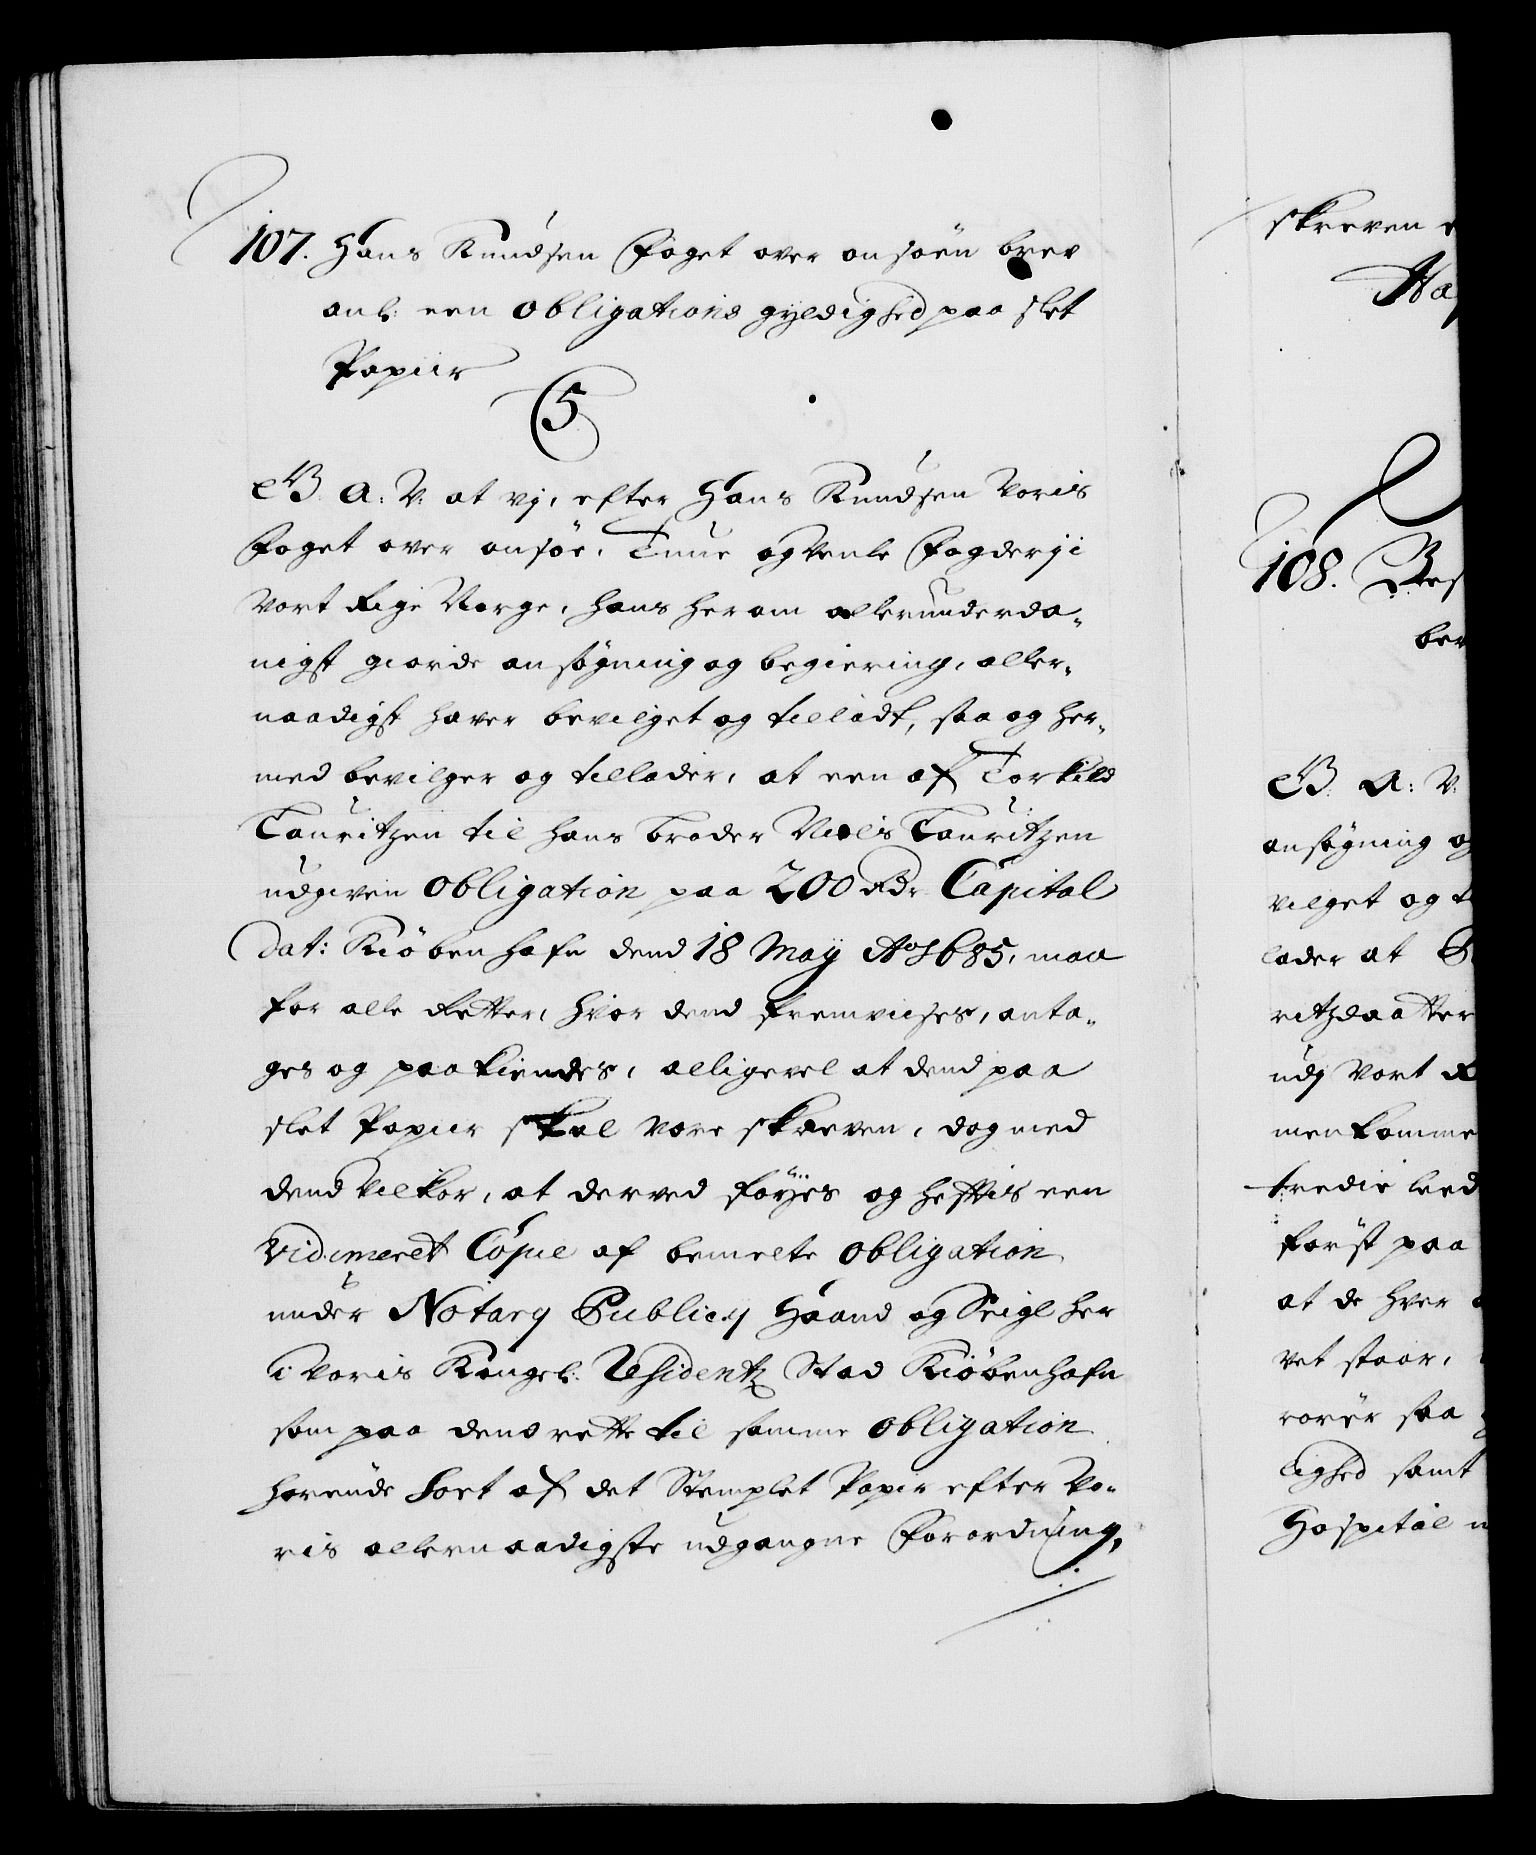 107. Hans Knudsen Foget over onsöen brev
anl: een Obligations gyldighed paa slet
Papiir
5
G. A: V: at vj, efter Hans Knudsen Voris
Foget over onsöe, Tune og Veale Fogderji
Vort Rige Norge, hans herom allerunderda„
nigst giorde ansøgning og begiering, aller„
naadigst haver bevilget og tilladt, saa og her„
med bevilger og tillader, at een af Torkild
Lauritzen til hans broder Niels Lauritzen
udgiven Obligation paa 200 Rdr Capital
dat: Kiöbenhafn dend 18 Maÿ Ao 1685, maa
for alle Retter, hvor dend fremviises, anta„
ges og paakiendes, alligevel at dend paa
slet Papiir skal være skreven, dog med
dend Vilkor, at derved føÿes og heftis een
Vidimeret Copie af bemelte Obligation
under Notarij Publicij Haand og Seigl her
i Voris Kongel: Residentz Stad Kiöbenhafn
som paa dend rette til samme Obligation
horende Sort af det Stemplet Papir efter Vo„
ris allernaadigste udgangne Forordning,
skreven
108.
ber
G. A: V:
ansøgning og
vilget og
lader at
ritzdaatter
udj Vort R
menkomme
tredie leed
først paa
at de hver
vet staar,
saa
lighed samt
Hospital